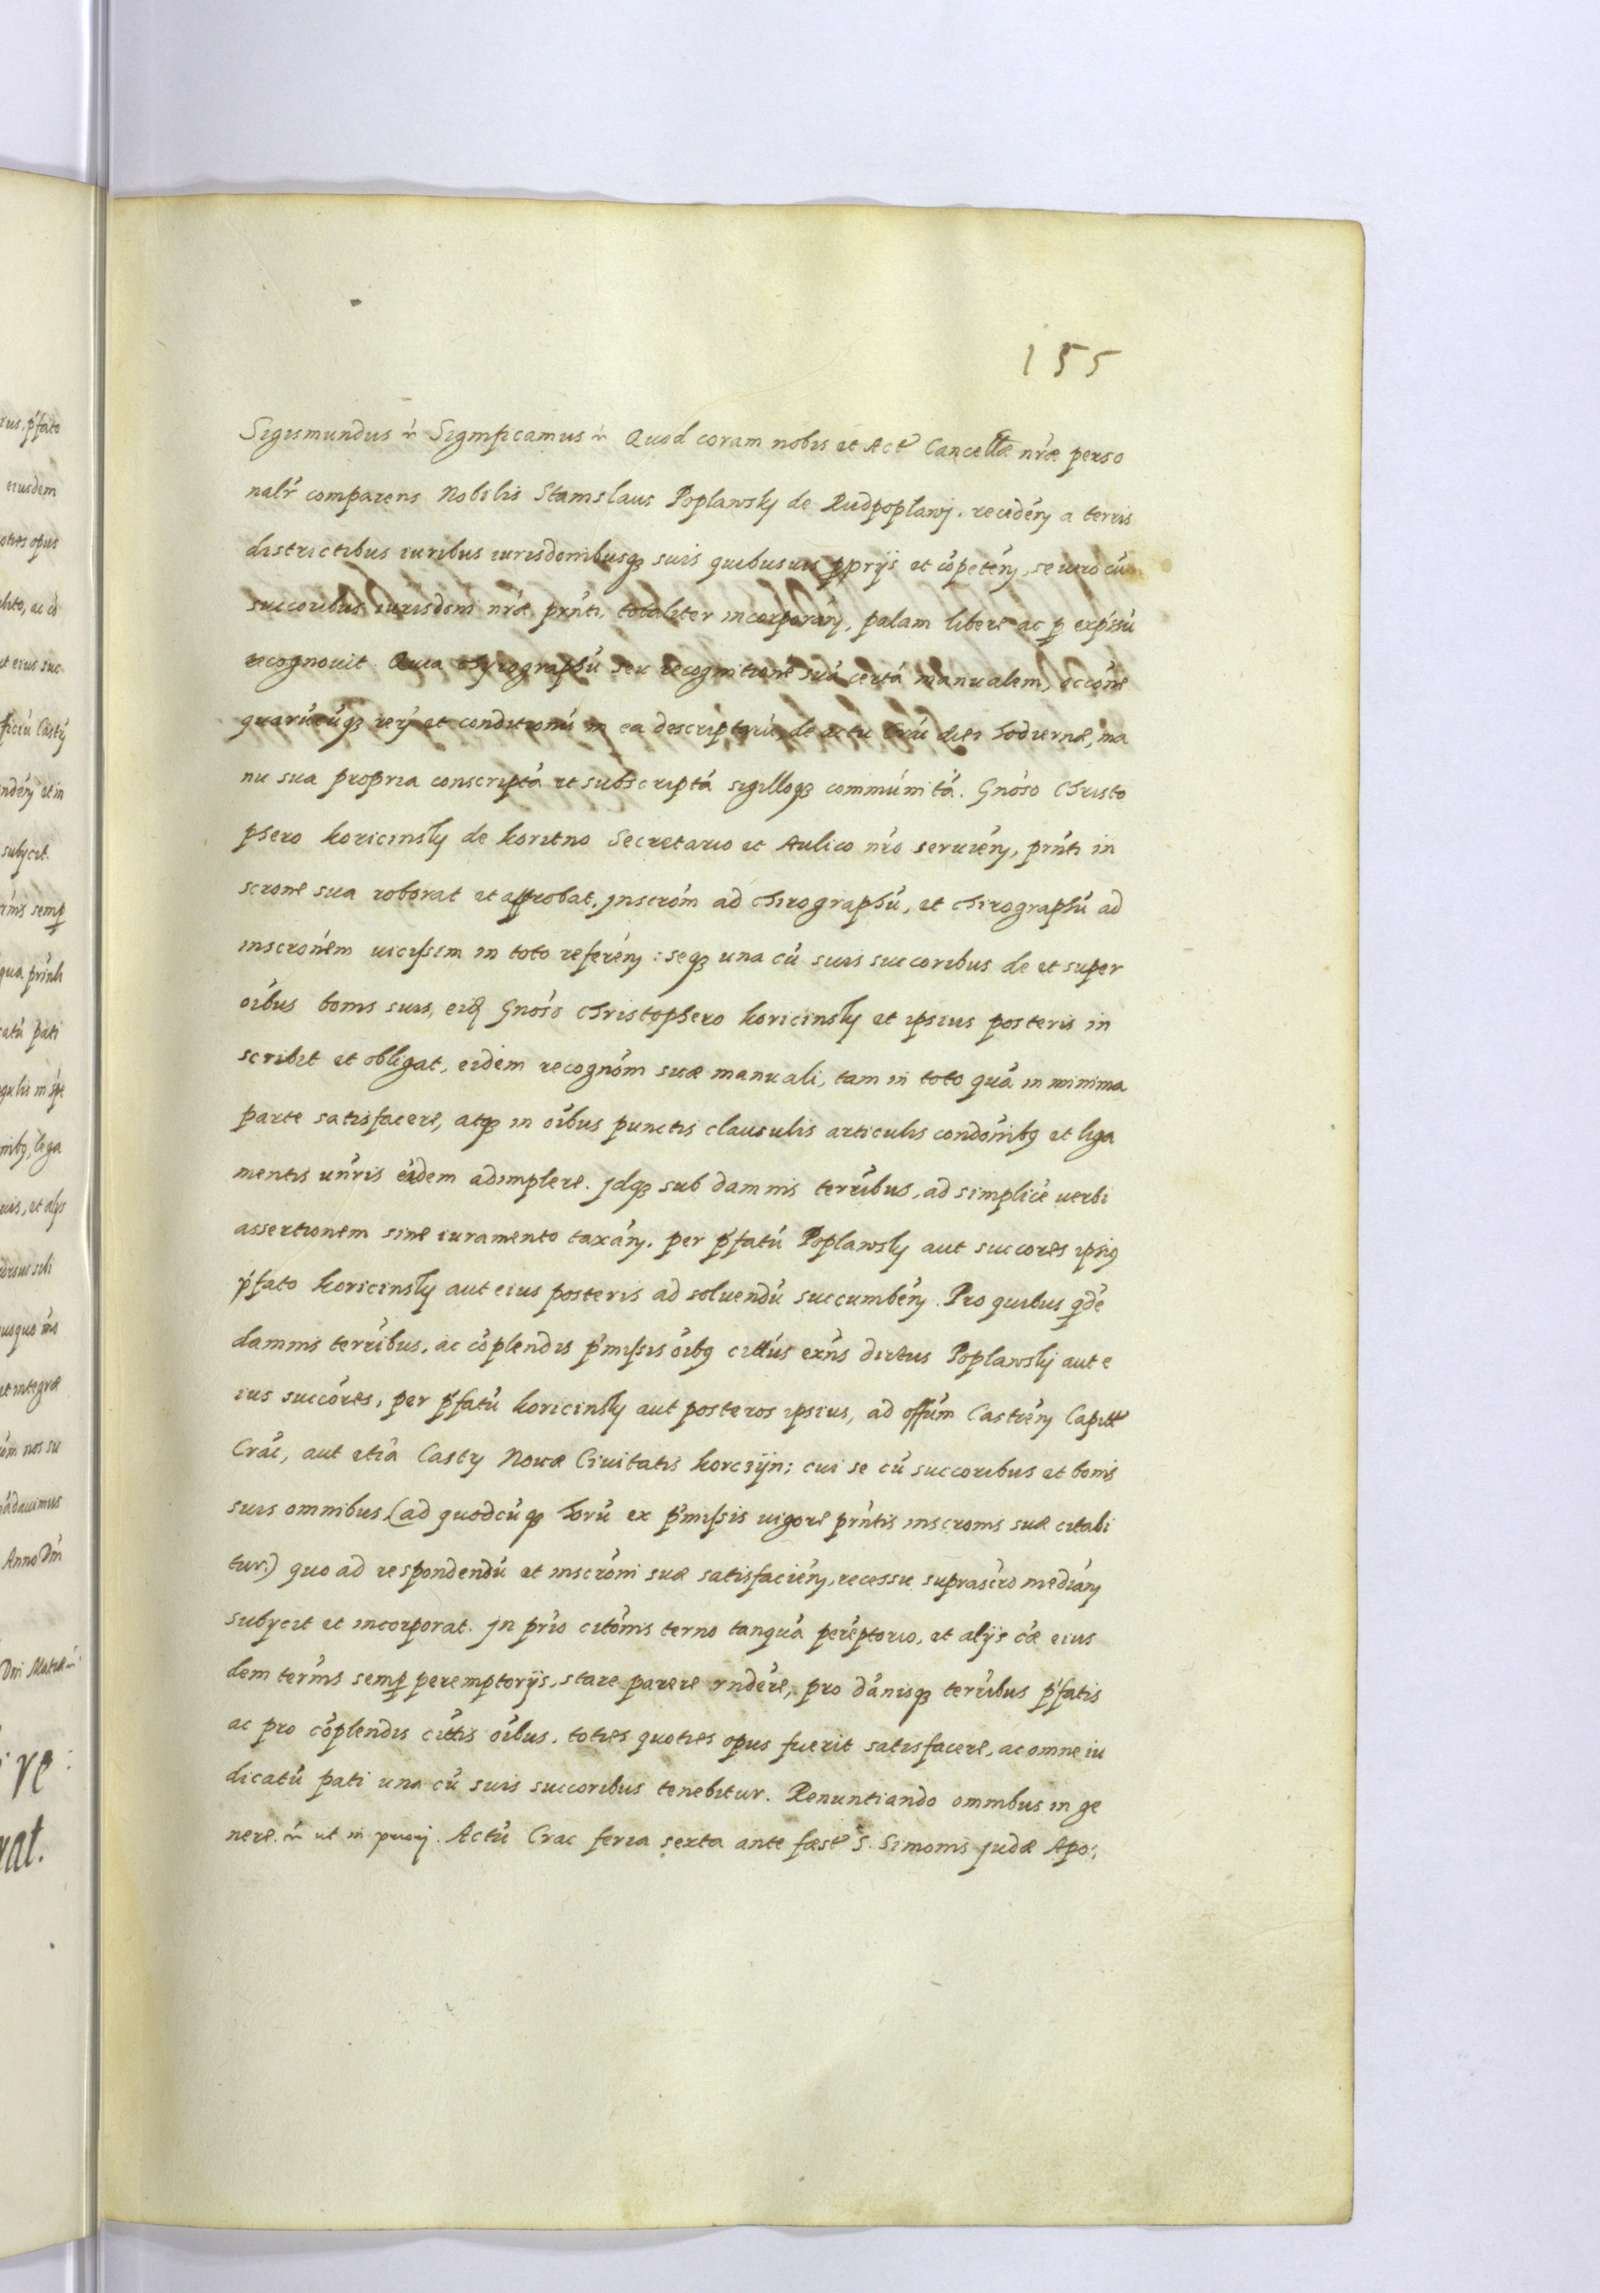 155
Sigismundus etc Significamus etc Quod coram nobis et Act Cancellae nrae perso
nalr comparens Nobilis Stanislaus Poplawsky de Rudpoplawy. recedeny a terris
districtibus iuribus iurisdonibusq suis quibusuis pprijs et competeny, se uero cu
succoribus iurisdoni nrae prnti, totaliter incorporany, palam libere ac p expsu
recognouit. Quia chyrographu seu recognitione sua certa manualem, occone
quarucuq rery et conditionu in ea descriptaru, de actu Crac diei hodiernae, ma
nu sua propria conscripta et subscripta sigilloq communita. Gnoso Christo
phero koricinsky de koritno Secretario et Aulico nro seruieny, prnti in
scrone sua roborat et approbat. Inscrom ad chirographu, et chirographu ad
inscronem uicissim in toto refereny: seq una cu suis succoribus de et super
oibus bonis suis, eid Gnoso Christophero koricinsky et ipsius posteris in
scribit et obligat, eidem recognom suae manuali, tam in toto qua in minima
parte satisfacere, atq in oibus punctis clausulis articulis condonibq et liga
mentis unris eidem adimplere. Idq sub damnis terribus, ad simplice uerbi
assertionem sine iuramento taxany, per pfatu Poplawsky aut succores ipsiq
pfato koricinsky aut eius posteris ad soluendu succumbeny. Pro quibus qde
damnis terribus, ac coplendis pmissis oibq citus exns dictus Poplawsky aut e
ius succores, per pfatu koricinsky aut posteros ipsius, ad offum Castreny Capitt
Crac, aut etia Castry Nouae Ciuitatis korczijn; cui se cu succoribus et bonis
suis omnibus (ad quodcuq horu ex pmissis uigore prntis inscronis suae citabi
tur.) quo ad respondendu et inscroni suae satisfacieny, recessu suprascro mediany
subycit et incorporat. In prio citonis terno tanqua pereptorio, et alijs cae eius
dem terms semp peremptorijs, stare parere rndere, pro danisq terribus pfatis
ac pro coplendis cittis oibus, toties quoties opus fuerit satisfacere, ac omne iu
dicatu pati una cu suis succoribus tenebitur. Renuntiando omnibus in ge
nere etc ut in priory. Actu Crac feria sexta ante faest S. Simonis Judae Apo: